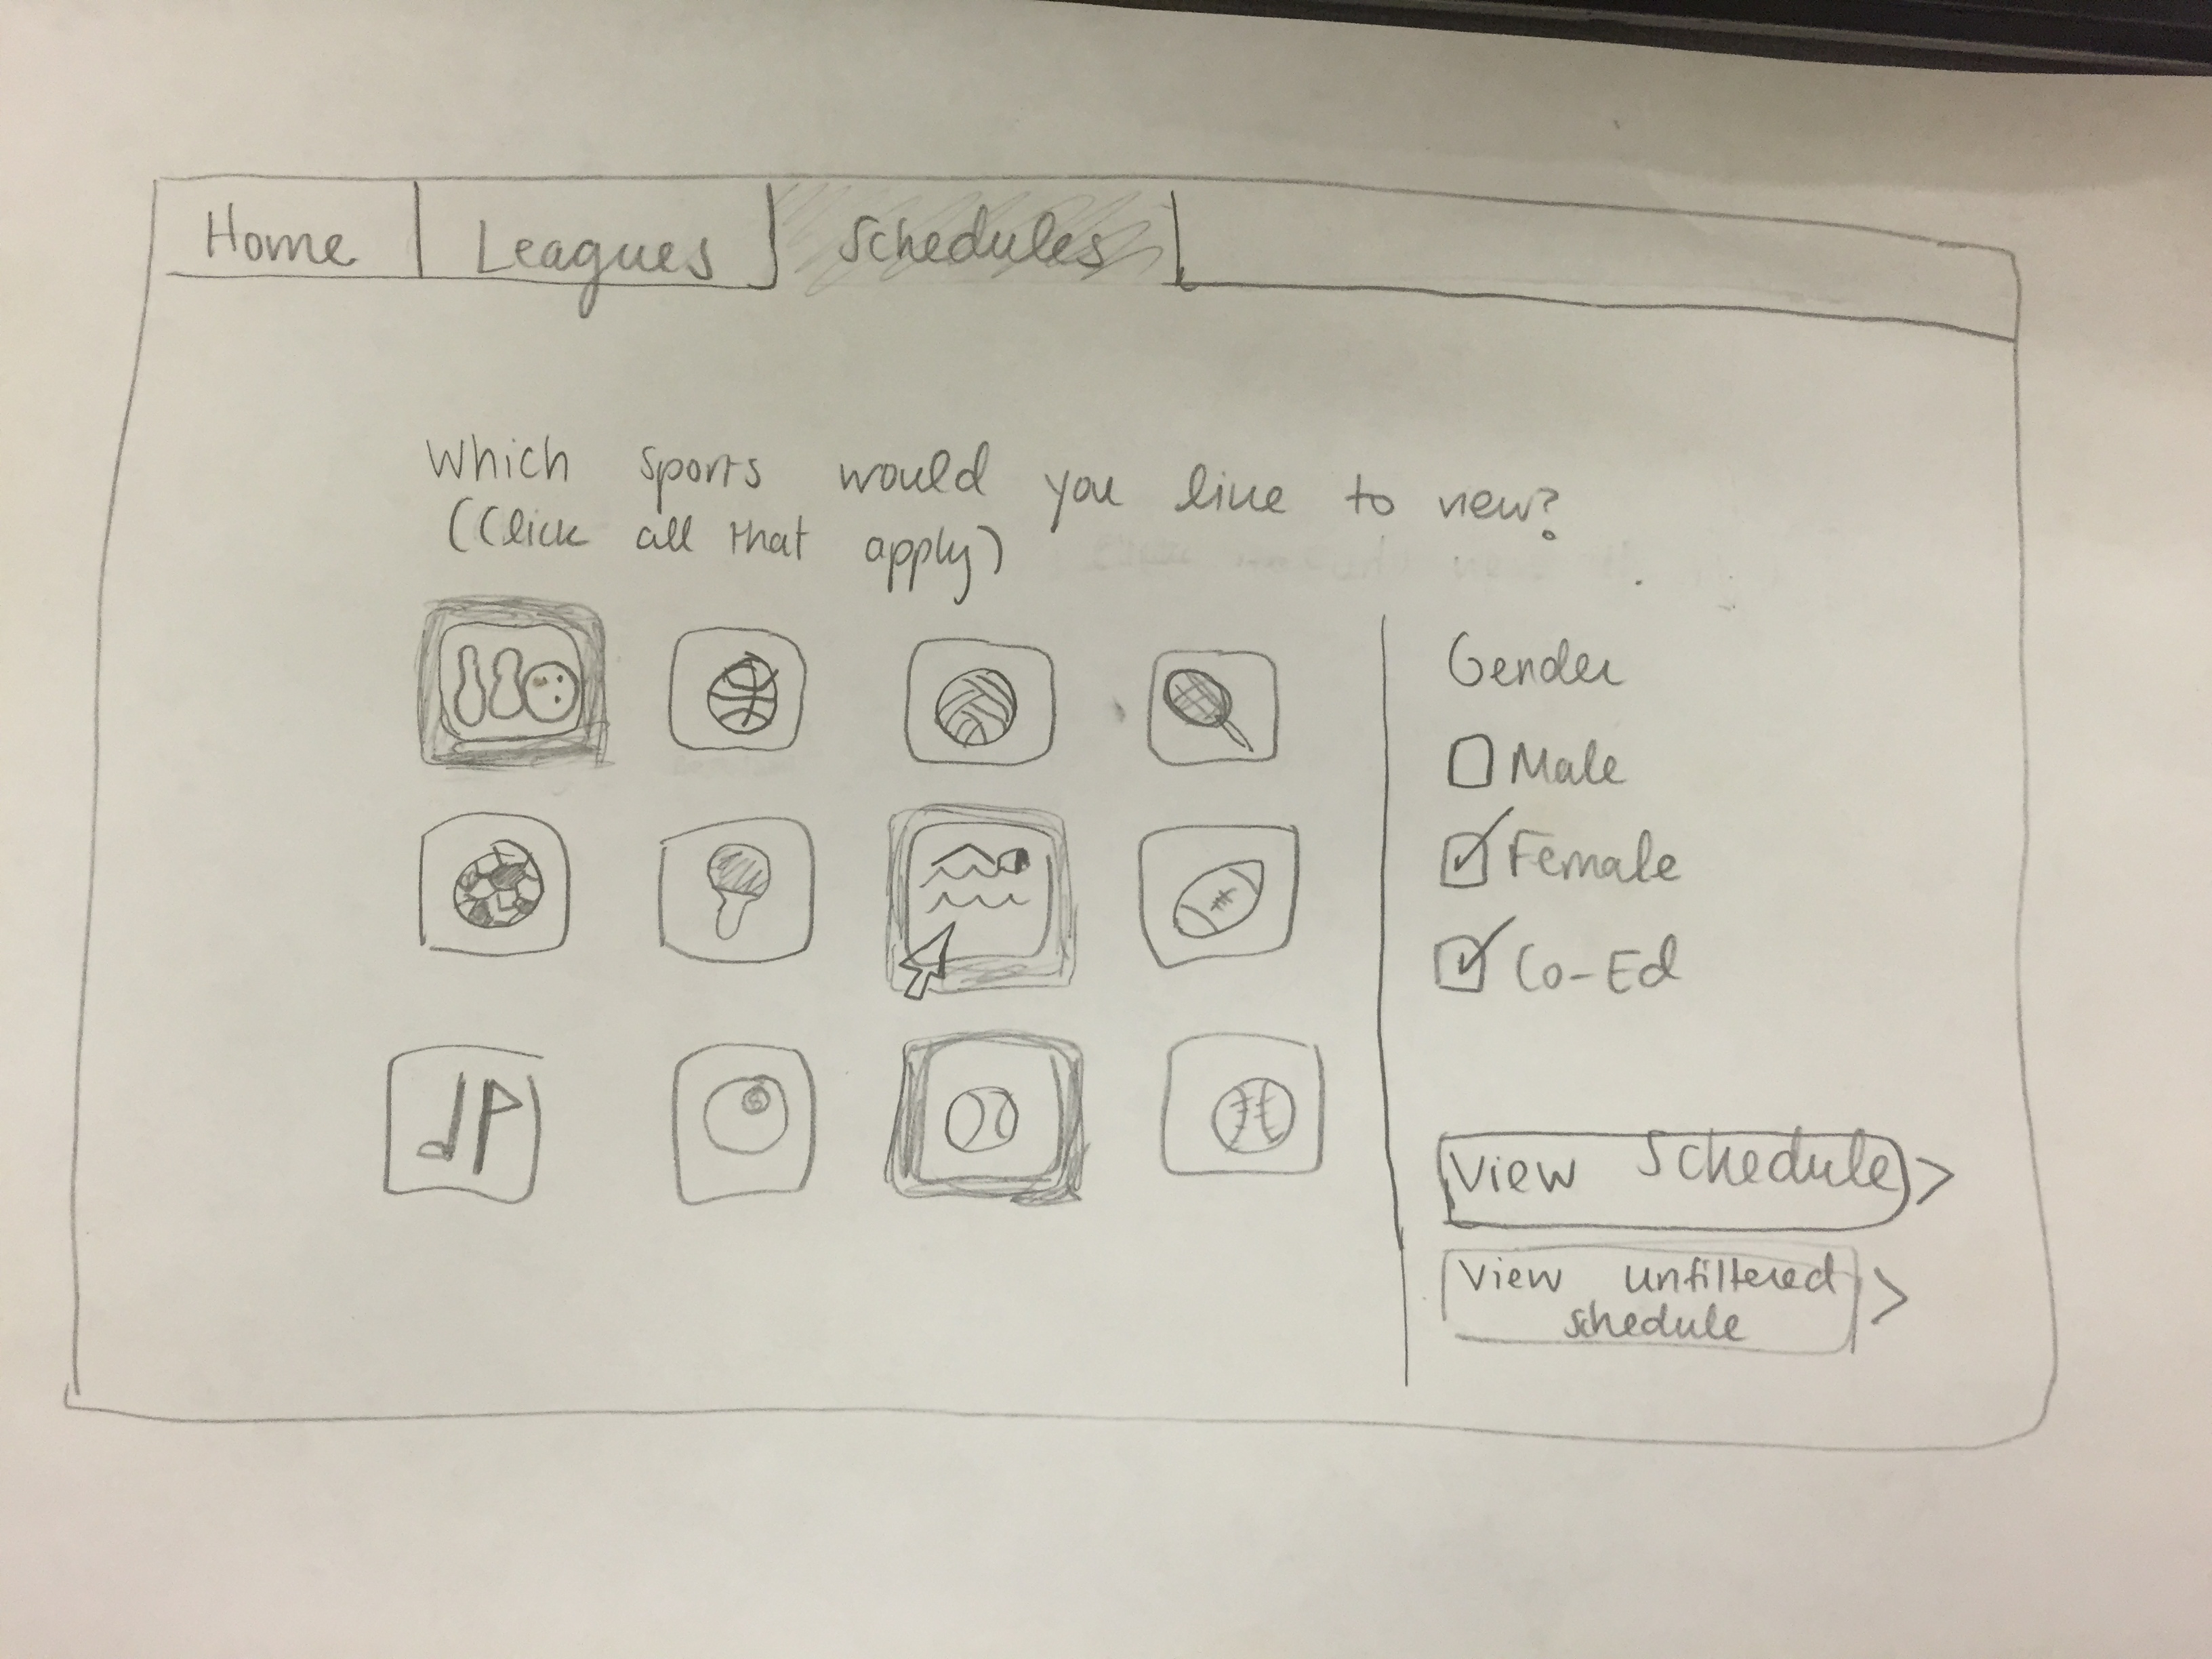 Home Leagues Schedules
Which sports would you like to view?
(Click all that apply)
Gender
Male
Female
Co-Ed
View Schedule >
View unfiltered
schedule >